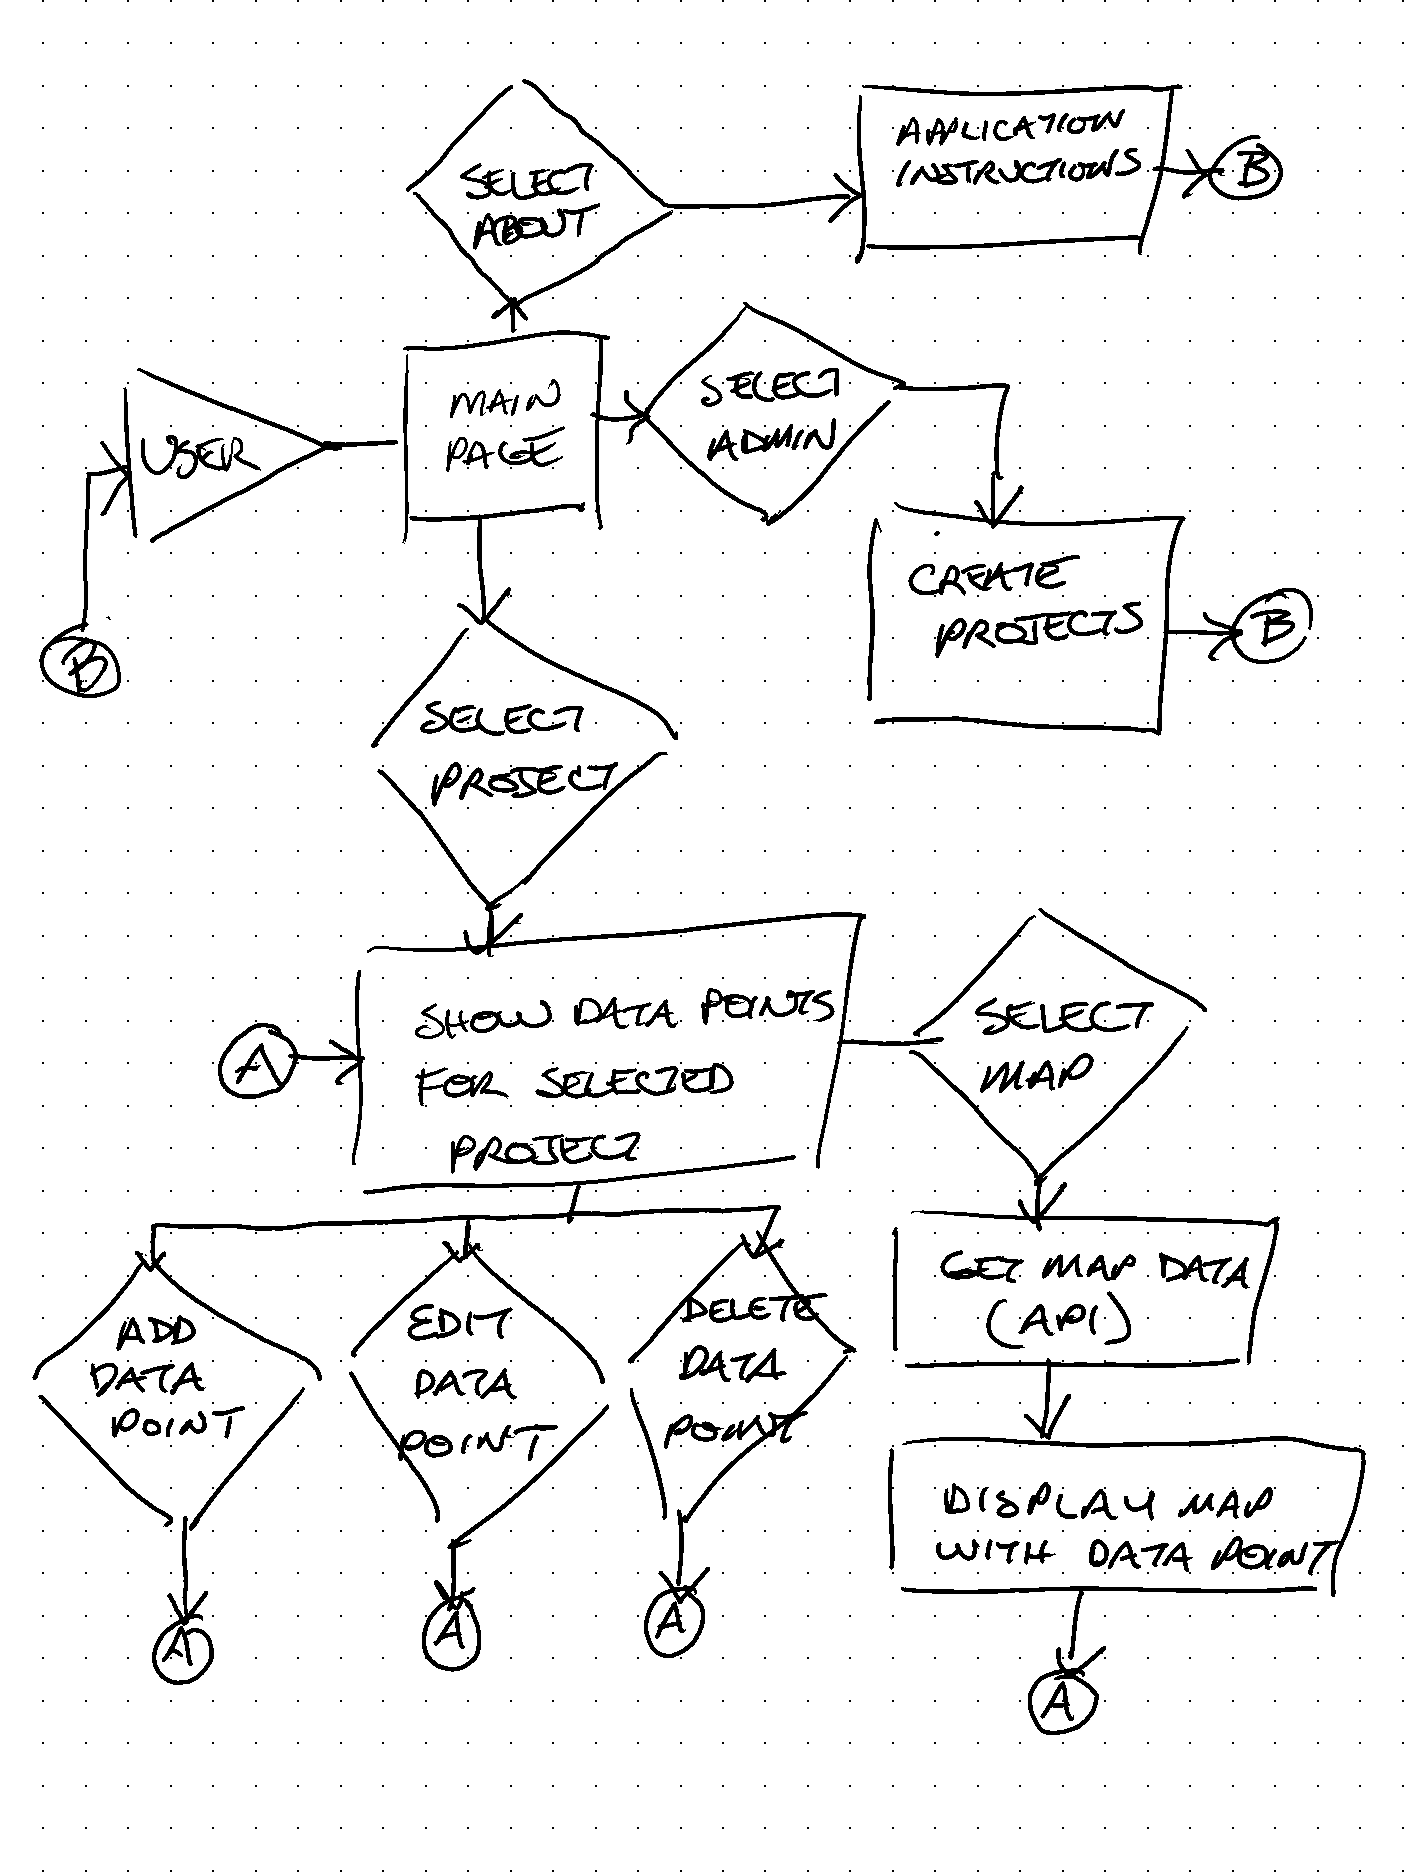 SELECT
ABOUT
APPLICATION
INSTRUCTIONS
B
USER
MAIN
PAGE
SELECT
ADMIN
CREATE
PROJECTS
B
B
SELECT
PROJECT
A
SHOW DATA POINTS
FOR SELECTED
PROJECT
SELECT
MAP
GET MAP DATA
(API)
ADD
DATA
POINT
EDIT
DATA
POINT
DELETE
DATA
POINT
DISPLAY MAP
WITH DATA POINT
A
A
A
A